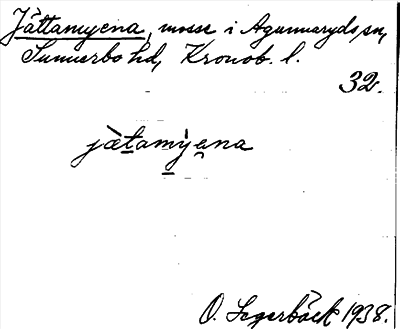 Jättamyena, mosse i Agunnaryds sn,
Sunnerbo hd, Kronob. l.
32.
jät̲amy̲ena
O. Segerbäck 1938.